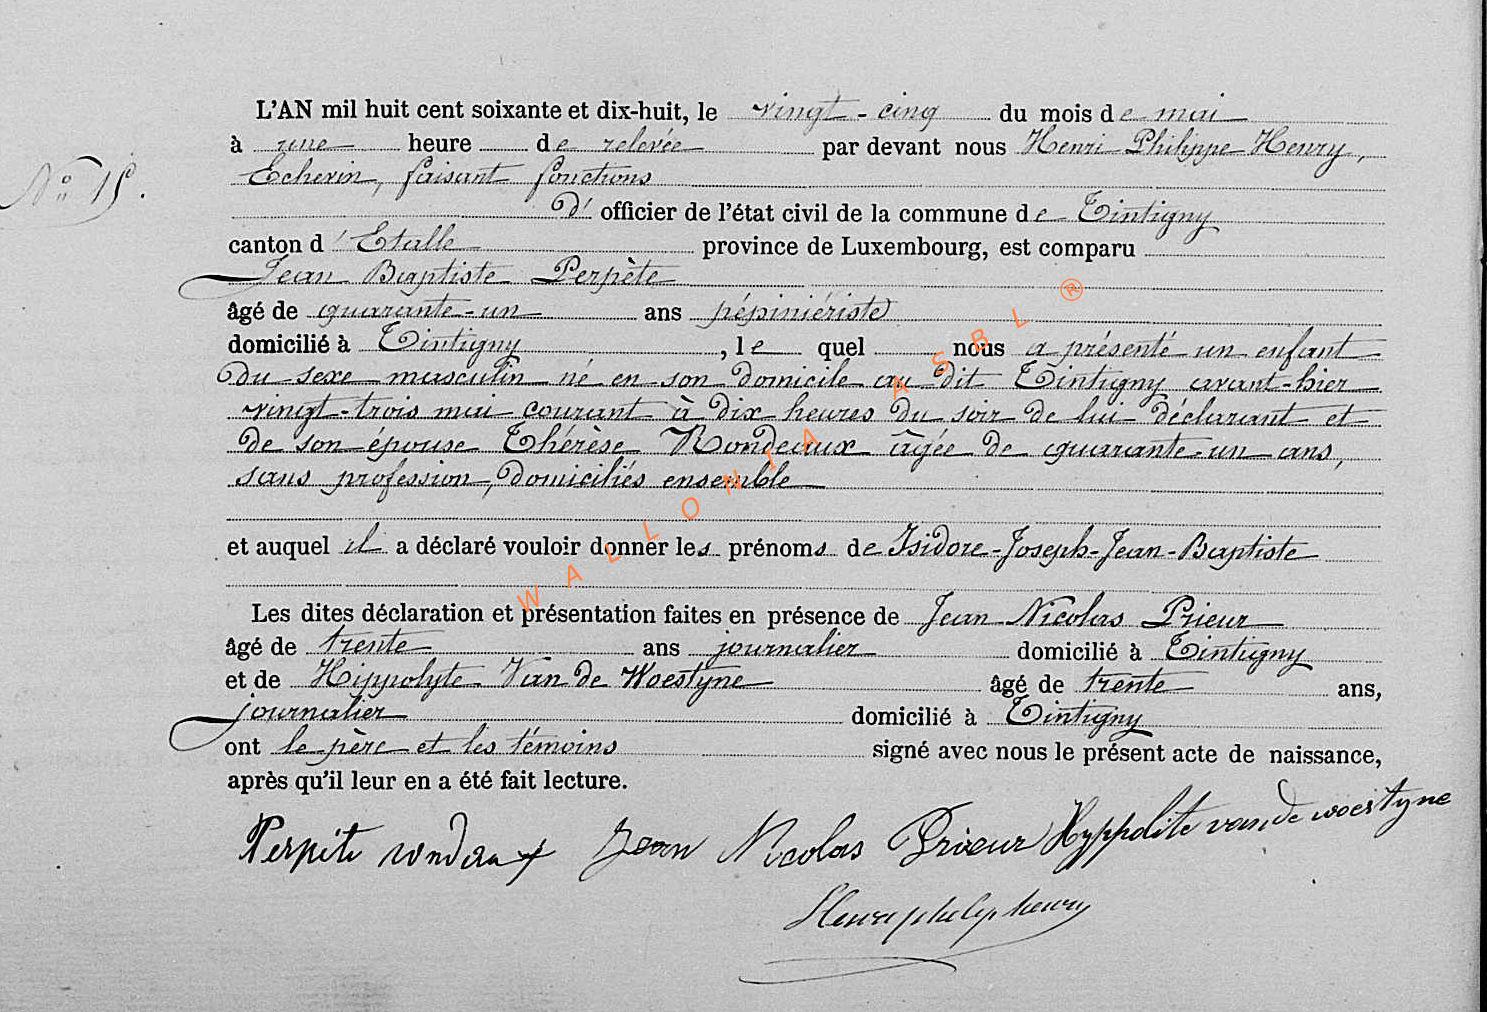 L'AN mil huit cent soixante et dix-huit, le vingt-cinq du mois de mai
à une heure de relevée par devant nous Henri Philippe Henry,
Echevin, faisant fonctions
N° 15.
d' officier de l'état civil de la commune de Tintigny
canton d'Etalle province de Luxembourg, est comparu
Jean Baptiste Perpète
âgé de quarante-un ans pépiniériste
domicilié à Tintigny, le quel nous a présenté un enfant
du sexe masculin né en son domicile au dit Tintigny avant-hier
vingt-trois mai courant à dix heures du soir de lui déclarant et
de son épouse Thérèse Rondeaux âgée de quarante-un ans,
sans profession, domiciliés ensemble
et auquel il a déclaré vouloir donner les prénoms de Isidore-Joseph-Jean-Baptiste
Les dites déclaration et présentation faites en présence de Jean Nicolas Prieur
âgé de trente ans journalier domicilié à Tintigny
et de Hippolyte Van de Woestyne âgé de trente ans,
journalier domicilié à Tintigny
ont le père et les témoins signé avec nous le présent acte de naissance,
après qu'il leur en a été fait lecture.
Perpète rondeaux Jean Nicolas Prieur Hyppolite van de woestyne
Henri philip henry
WALLONIA ASBL ®